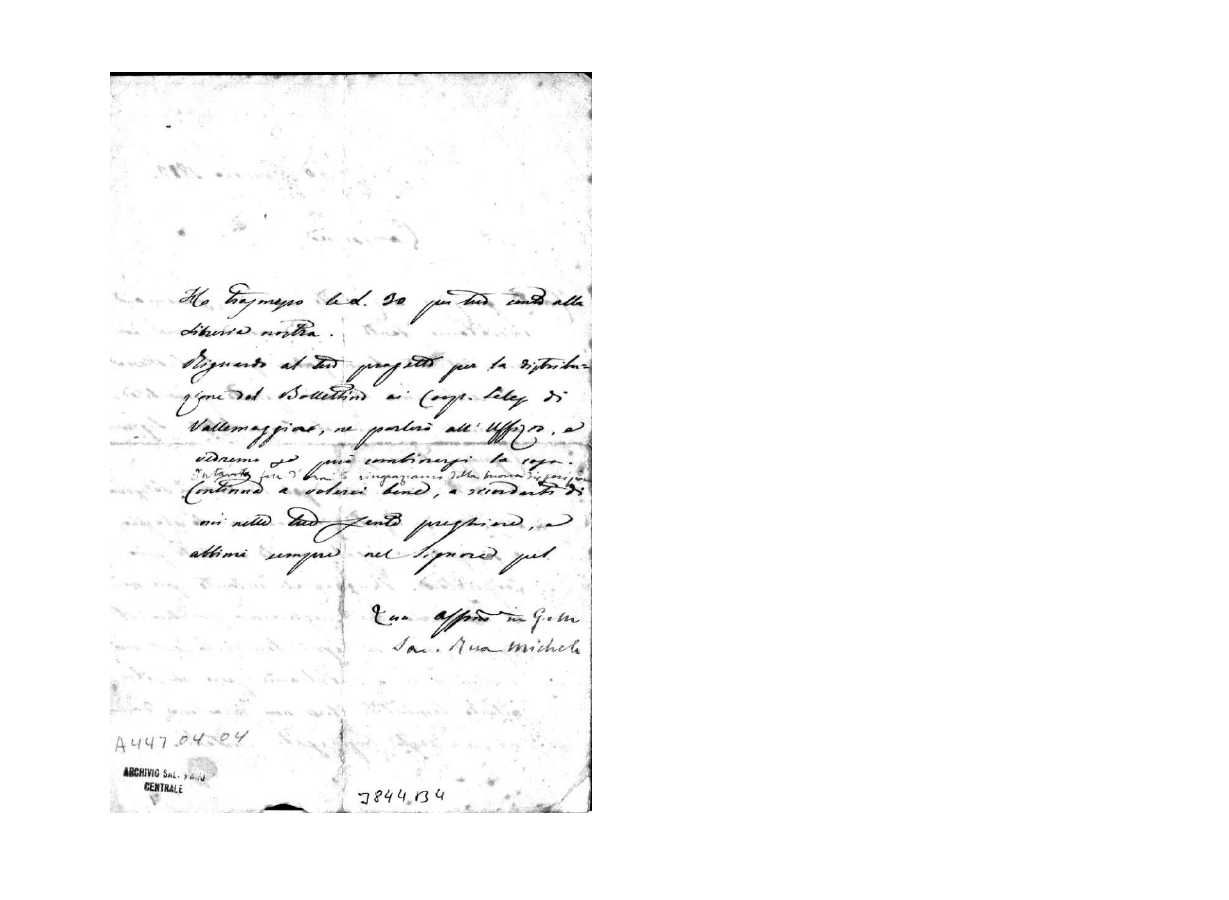 Ho trasmesso le L. 30 per tuo conto alla
libreria nostra.
Riguardo al tuo progetto per la distribu=
zione del Bollettino ai Coop. Sales di
Vallemaggiore, ne parlerò all'Uffizio, e
vedremo se può combinarsi la cosa.
Intanto fin d'ora ti ringraziamo della buona disposizione
Continua a volerci bene, a ricordarti di
noi nelle tue sante preghiere, e
abbimi sempre nel Signore pel
Tuo affmo in G. e M.
Sac. Rua Michele
A447.04.04
ARCHIVIO SALESIANO
CENTRALE
3844 B4